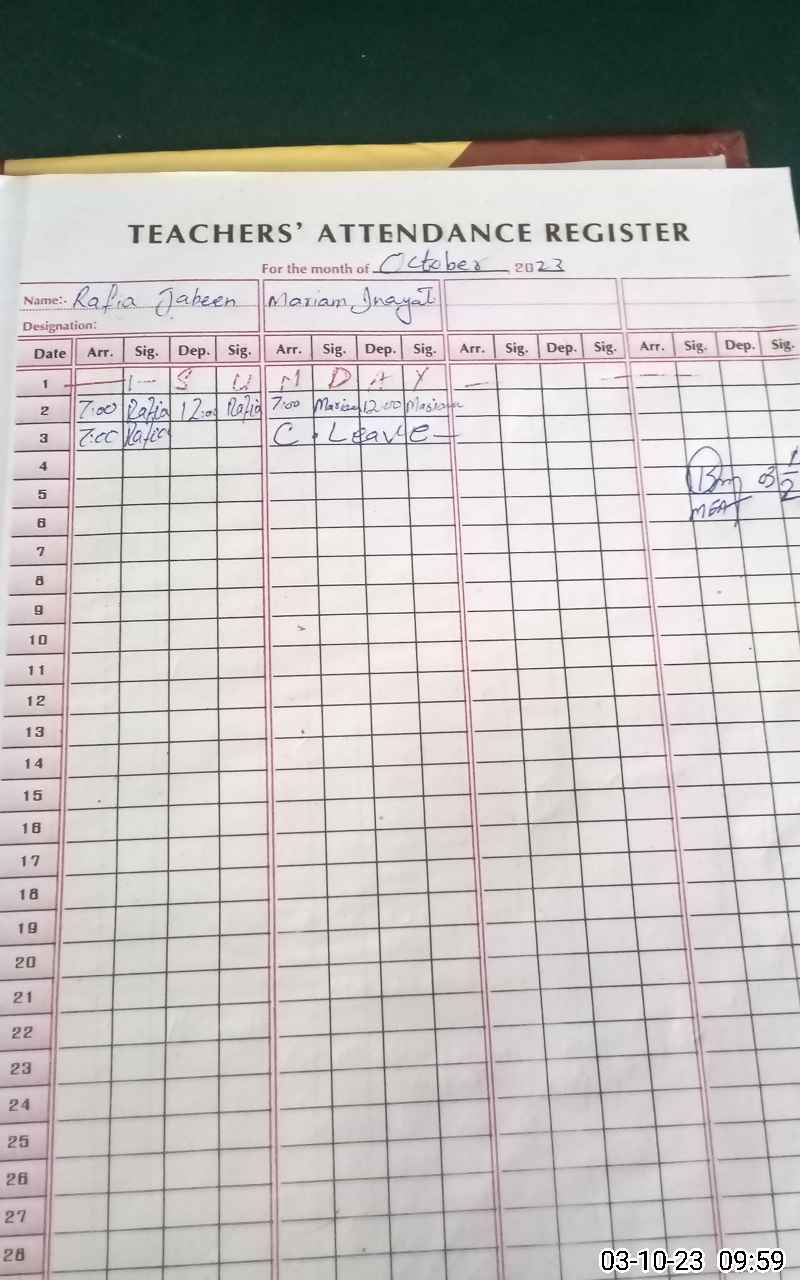 TEACHERS' ATTENDANCE REGISTER
For the month of October 2023
Name:- Rafia Jabeen Mariam Inayat
Designation:
Date Arr. Sig. Dep. Sig. Arr. Sig. Dep. Sig. Arr. Sig. Dep. Sig. Arr. Sig. Dep. Sig.
1 S U N D A Y
2 7:00 Rafia 12:00 Rafia 7:00 Mariam 12:00 Mariam
3 7:00 Rafia C. Leave
4
5
6
7
8
9
10
11
12
13
14
15
16
17
18
19
20
21
22
23
24
25
26
27
28
03-10-23 09:59